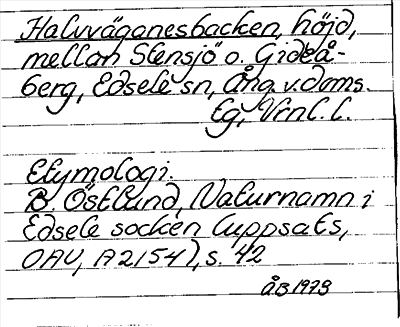 Halvväganesbacken, höjd,
mellan Stensjö o. Gideå-
berg, Edsele sn, Ång. v. doms.
Eg, Vrnl. l.
Etymologi.
B. Östlund, Naturnamn i
Edsele socken (uppsats,
OAU, A2154), s. 42
ÅB 1979